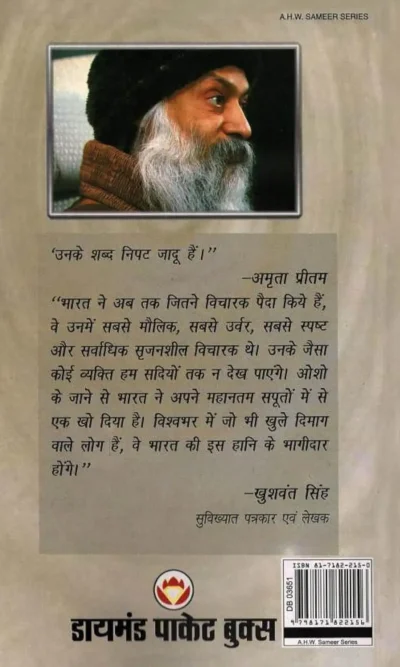 A.H.W. SAMEER SERIES
‘उनके शब्द निपट जादू हैं।’’
–अमृता प्रीतम
‘‘भारत ने अब तक जितने विचारक पैदा किये हैं,
वे उनमें सबसे मौलिक, सबसे उर्वर, सबसे स्पष्ट
और सर्वाधिक सृजनशील विचारक थे। उनके जैसा
कोई व्यक्ति हम सदियों तक न देख पाएंगे। ओशो
के जाने से भारत ने अपने महानतम सपूतों में से
एक खो दिया है। विश्वभर में जो भी खुले दिमाग
वाले लोग हैं, वे भारत की इस हानि के भागीदार
होंगे।’’
–खुशवंत सिंह
सुविख्यात पत्रकार एवं लेखक
ISBN 81-7182-215-0
DB 03651
9 788171 822156
A.H.W. Sameer Series
डायमंड पाकेट बुक्स